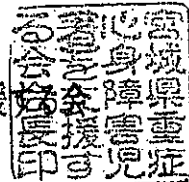 宮城県重症
心身障害児
者を支援す
る会会長印